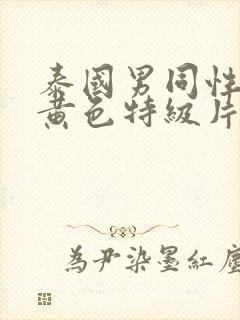 泰國男同性
黄色特級片
為尹染墨紅塵